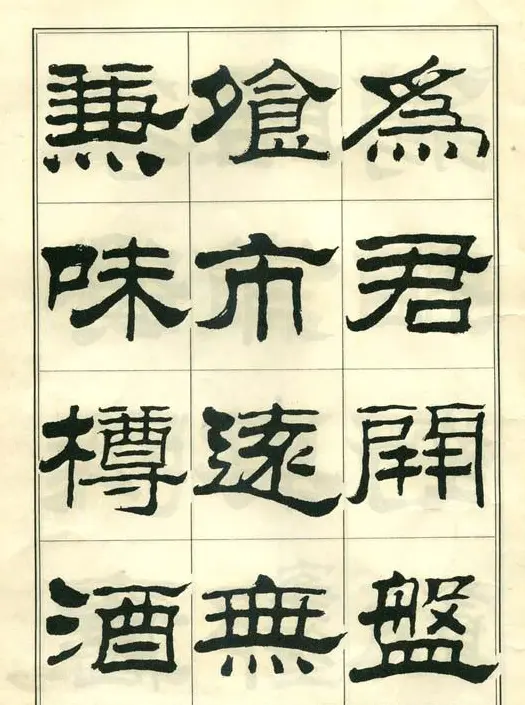 為君開盤
飧市遠無
兼味樽酒